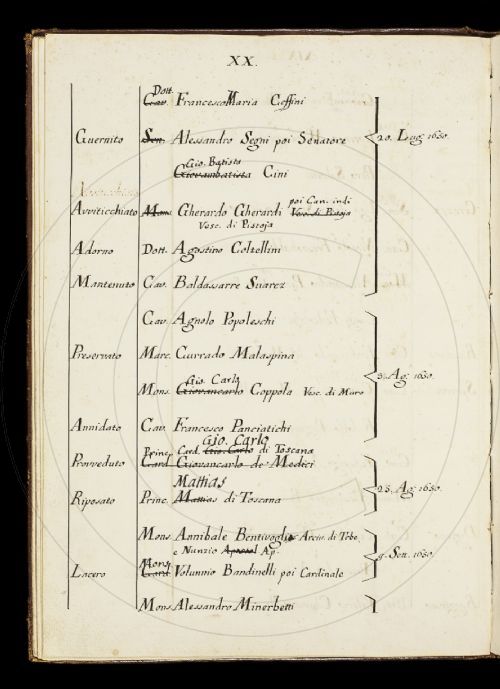 XX.
Dott.
Cav. Francesco Maria Ceffini
Guernito Sen. Alessandro Segni poi Senatore 20. Lug. 1650.
Gio. Batista
Giovambatista Cini
poi Can. indi
Avviticchiato Mons. Gherardo Gherardi Vesc. di Pistoja
Vesc. di Pistoja
Adorno Dott. Agostino Coltellini
Mantenuto Cav. Baldassarre Suarez
Cav. Agnolo Popoleschi
Preservato Marc. Currado Malaspina
3. Ag. 1650.
Gio. Carlo
Mons. Giovancarlo Coppola Vesc. di Muro
Annidato Cav. Francesco Panciatichi
Gio. Carlo
Princ. Card. Gio. Carlo di Toscana
Provveduto Card. Giovancarlo de' Medici
Mattias
Riposato Princ. Mattias di Toscana 25. Ag. 1650.
Mons. Annibale Bentivoglio Arciv. di Tebe
e Nunzio Apostol Ap.
9. Sett. 1650.
Mons.
Lacero Card. Volunnio Bandinelli poi Cardinale
Mons. Alessandro Minerbetti